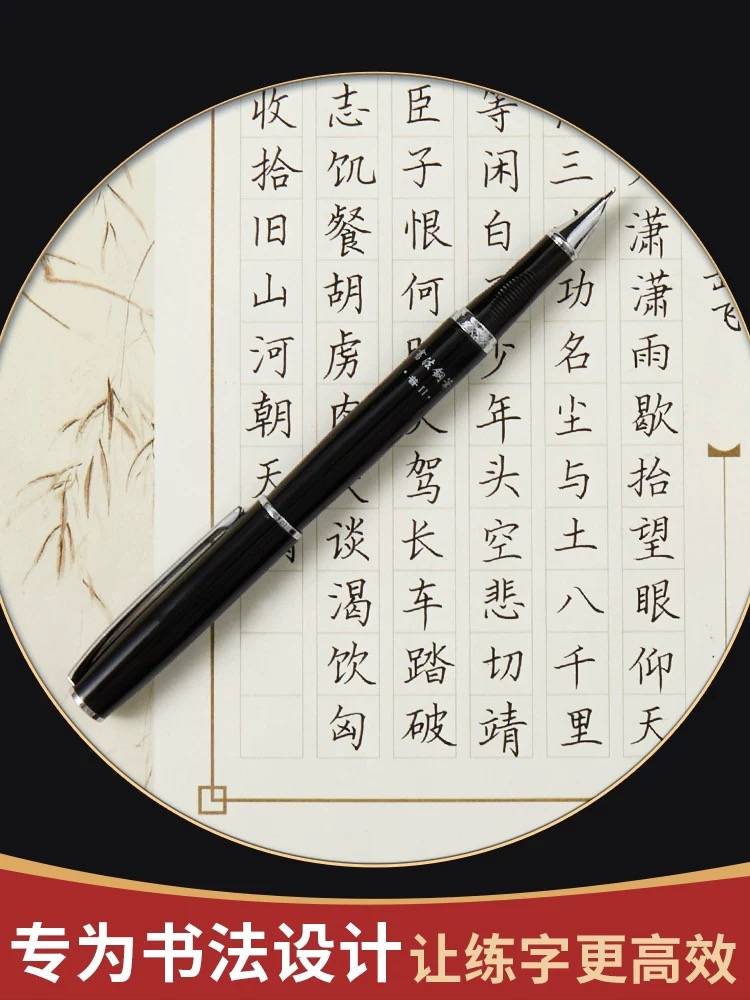 飞
潇潇雨歇抬望眼仰天
三功名尘与土八千里
等闲白少年头空悲切靖
臣子恨何驾长车踏破
志饥餐胡虏肉谈渴饮匈
收拾旧山河朝天
書法鋼
专为书法设计 让练字更高效